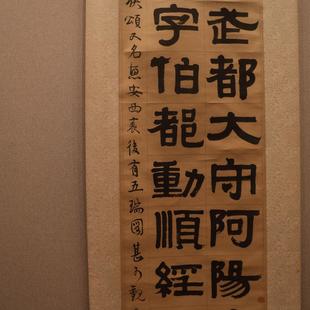 武都大守阿陽
字伯都動順經
頌又名惠安西表後有五瑞圖甚可觀